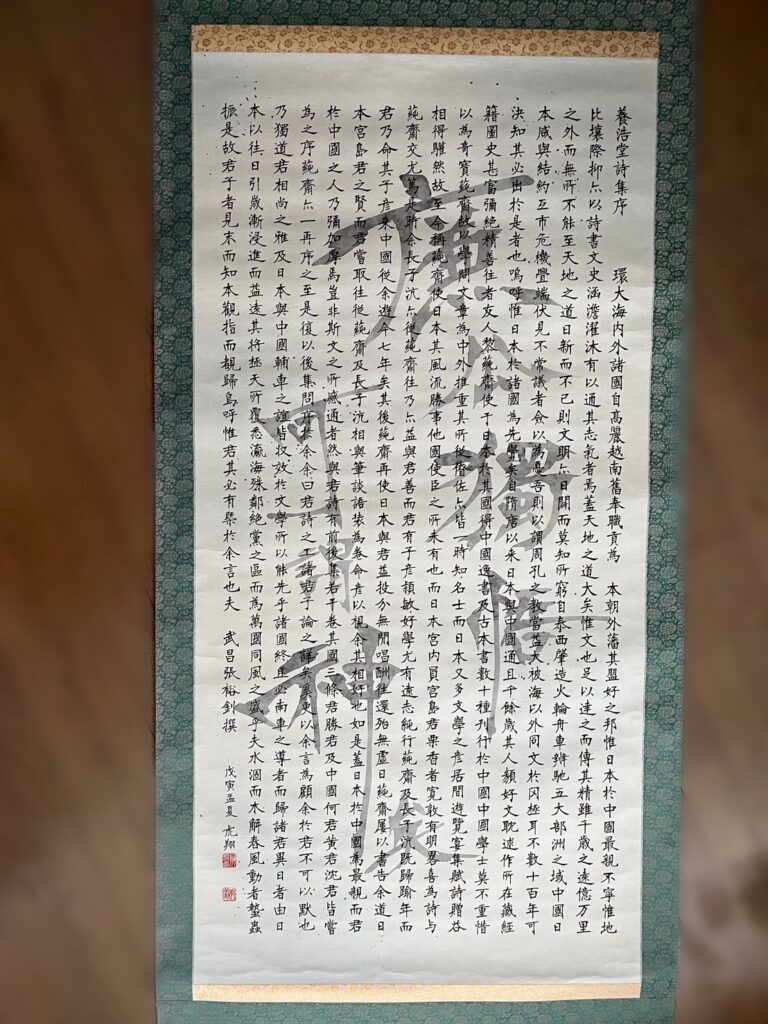 養浩堂詩集序　環大海內外諸國自高麗越南舊奉職貢為　本朝外藩其盟好之邦惟日本於中國最親不寧惟地
比壤際抑亦以詩書文史涵澹濯沐有以通其志氣者焉蓋天地之道大矣惟文也足以達之而傳其精雖千歲之遠億万里
之外而無所不能至天地之道日新而不已則文明亦日開而莫知所窮自泰西肇造火輪舟車辨馳五大部洲之域中國日
本咸與結約互市危機舋端伏見不常議者僉以為憂吾則以謂周孔之教當益大被海以外同文於冈極耳不數十百年可
決知其必出於是者也嗚呼惟日本於諸國為先覺矣自隋唐以来日本與中國通且千餘歲其人類好文耽述作所在藏經
籍圖史甚富彌絕精善往者友人黎蒓齋使于日本於其國得中國逸書及古本書數十種刊行於中國中國學士莫不重惜
以為奇寶蒓齋故以學問文章為中外推重其所從僚佐亦皆一時知名士而日本又多文學之彥居閒遊覽宴集賦詩贈答
相得驩然故至今稱蒓齋使日本其風流勝事他國使臣之所未有也而日本宮內貟宮島君栗香者寬敦有明畧喜為詩与
蒓齋交尤篤是時余長子沆亦從蒓齋往乃亦益與君善而君有子彥穎敏好學尤有遠志純行蒓齋及長子沆既歸踰年而
君乃命其子彥来中國從余遊今七年矣其後蒓齋再使日本與君益投分無閒唱酬往還殆無虛日蒓齋屢以書告余道日
本宮島君之賢而君嘗取往從蒓齋及長子沆相與筆談語裝為卷命彥以視余其相好也如是蓋日本於中國為最親而君
於中國之人乃彌加厚焉豈非斯文之所感通者然與君詩有前後集若干卷其國三條君勝君及中國何君黃君沈君皆嘗
為之序蒓齋亦一再序之至是復以後集問序於余余曰君詩之工諸君子論之詳矣奚更以余言為顧余於君不可以默也
乃獨道君相尚之雅及日本與中國輔車之誼皆收效於文學所以能先乎諸國終正必南車之導者而歸諸君異日者由日
本以往日引歲漸浸進而益遠其將極天所覆悉瀛海殊鄰絕黨之區而為萬國同風之盛乎夫水涸而木解春風動者蟄蟲
振是故君子者見末而知本觀指而覩歸烏呼惟君其必有槩於余言也夫　武昌張裕釗撰
戊寅孟夏　虎翔
公獨悟
可謂神俊